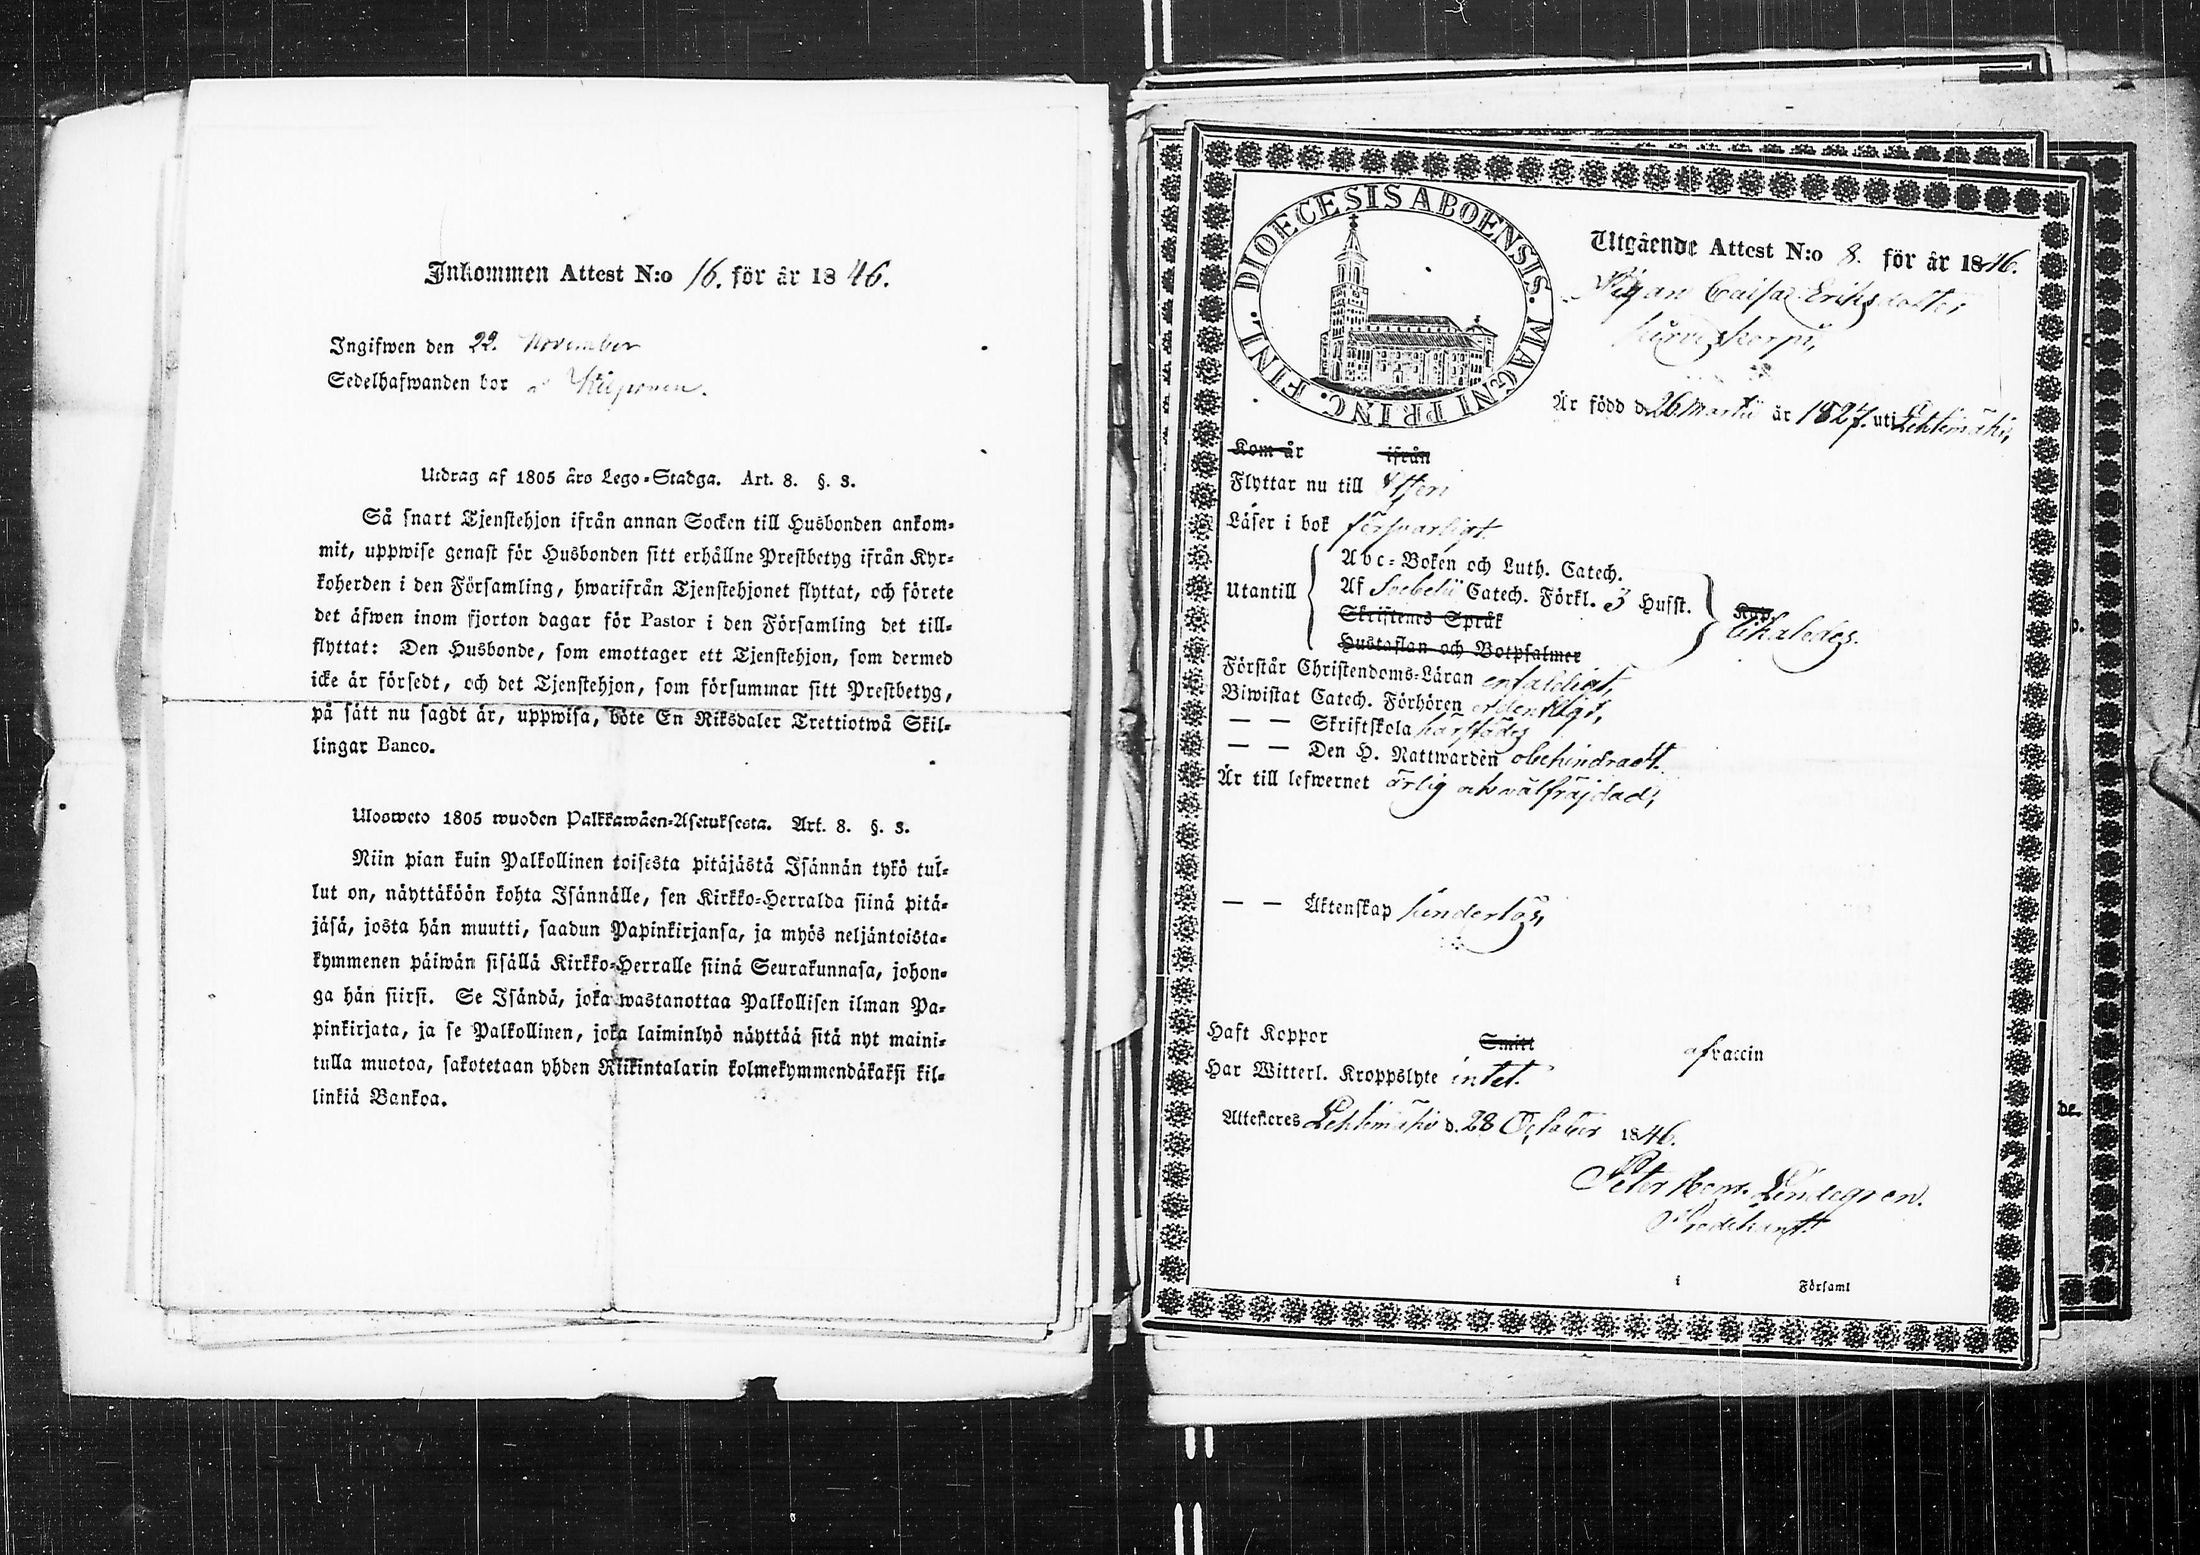 Inkommen Attest N:o 16. för år 1846.
Ingifwen den 22. November
Sedelhafwanden bor å Kilponen.
Utdrag af 1805 års Lego-Stadga. Art. 8. §. 3.
Så snart Tjenstehjon ifrån annan Socken till Husbonden ankom-
mit, uppwise genast för Husbonden sitt erhållne Prestbetyg ifrån Kyr-
koherden i den Församling, hwarifrån Tjenstehjonet flyttat, och förete
det äfwen inom fjorton dagar för Pastor i den Församling det till-
flyttat: Den Husbonde, som emottager ett Tjenstehjon, som dermed
icke är försedt, och det Tjenstehjon, som försummar sitt Prestbetyg,
på sätt nu sagdt är, uppwisa, böte En Riksdaler Trettiotwå Skil-
lingar Banco.
Ulosweto 1805 wuoden Palkkawäen-Asetuksesta. Art. 8. §. 3.
Niin pian kuin Palkollinen toisesta pitäjästä Isännän tykö tul-
lut on, näyttäköön kohta Isännälle, sen Kirkko-Herralda siinä pitä-
jäsä, josta hän muutti, saadun Papinkirjansa, ja myös neljäntoista-
kymmenen päiwän sisällä Kirkko-Herralle siinä Seurakunnasa, johon-
ga hän siirsi. Se Isändä, joka wastanottaa Palkollisen ilman Pa-
pinkirjata, ja se Palkollinen, joka laiminlyö näyttää sitä nyt maini-
tulla muotoa, sakotetaan yhden Riikintalarin kolmekymmendäkaksi kil-
linkiä Bankoa.
DIOECESIS ABOENSIS. MAGNI PRINC. FINL.
Utgående Attest N:o 8. för år 1846.
Pigan Caisa Eriksdotter
Är född d. 26 Martii år 1827. uti Lehtimäki,
Kom år ifrån
Flyttar nu till
Läser i bok försvarligt.
Abc-Boken och Luth. Catech.
Utantill Af Svebelii Catech. Förkl. 3 Hufst.
Skriftens Språk
Hustaflan och Botpsalmer
likaledes.
Förstår Christendoms-Läran enfaldigt,
Biwistat Catech. Förhören ordentligt,
— — Skriftskola härstädes
— — Den H. Nattwarden obehindradt.
Är till lefwernet ärlig och välfräjdad,
— — Äktenskap hinderlös,
Haft Koppor Smitt vaccin
Har Witterl. Kroppslyte intet.
Attesteres Lehtimäki d. 28 October 1846.
Peter Herm. Lindegren.
Predikant
i Församl